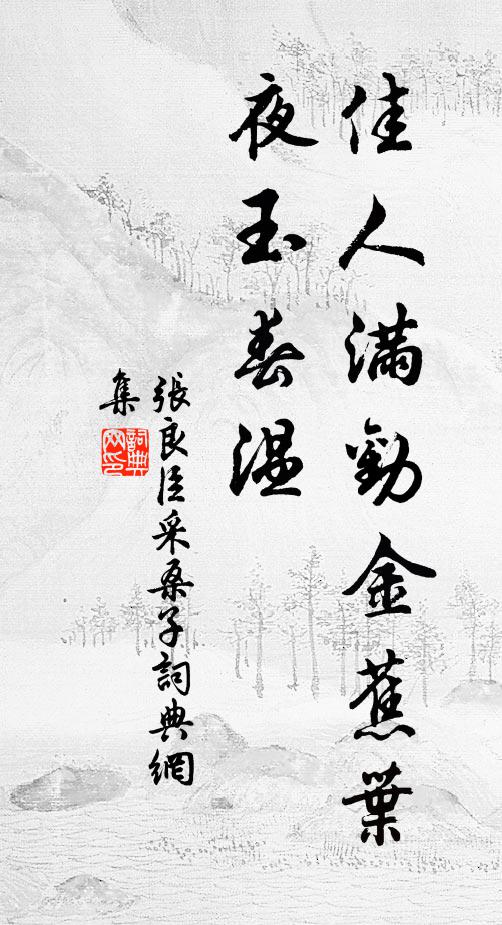 佳人滿勸金蕉葉
夜玉春溫
張良臣采桑子詞典網
集
詞典
网印